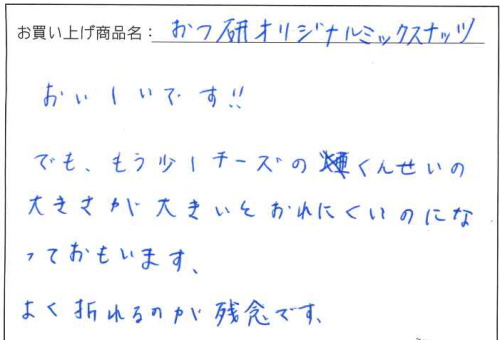 お買い上げ商品名: おつ研オリジナルミックスナッツ
おいしいです!!
でも、もう少しチーズのくんせいの
大きさが大きいとおれにくいのにな
っておもいます、
よく折れるのが残念です、